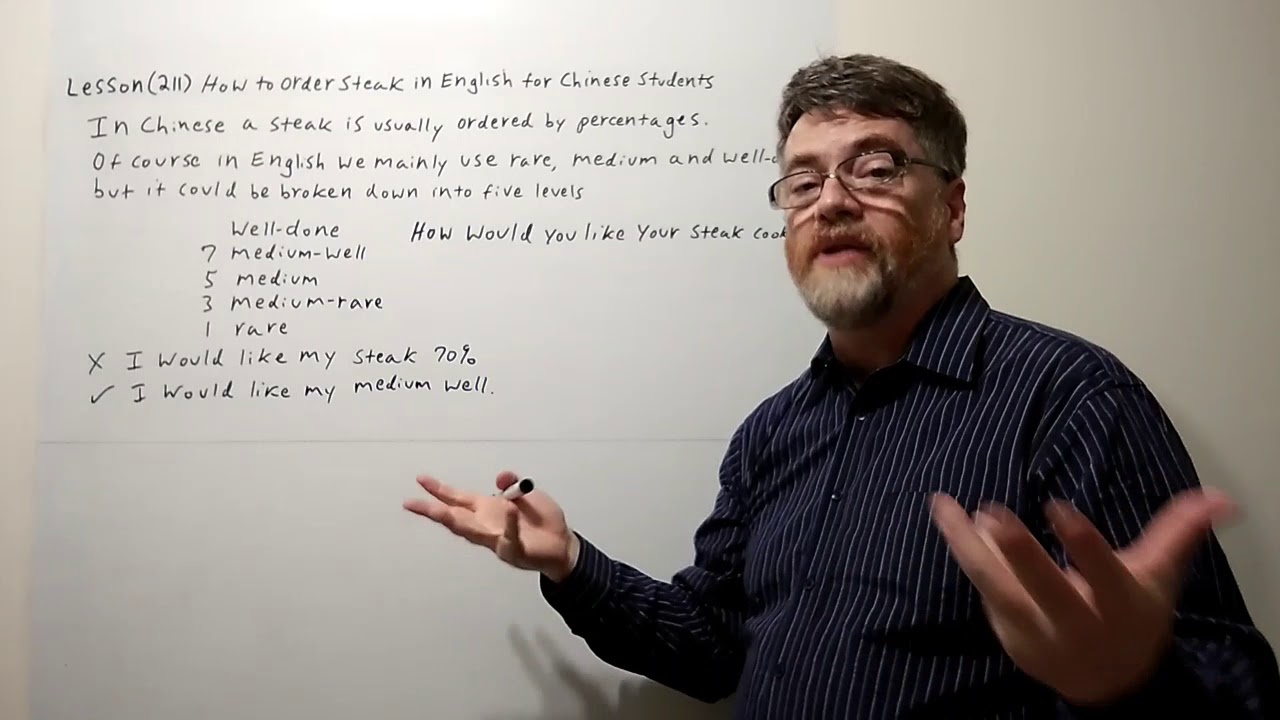 Lesson(211) How to order steak in English for Chinese Students
In Chinese a steak is usually ordered by percentages.
Of course in English we mainly use rare, medium and well-
but it could be broken down into five levels
Well-done
How would you like your steak
7 medium-well
5 medium
3 medium-rare
1 rare
X I would like my steak 70%
✓ I would like my medium well.